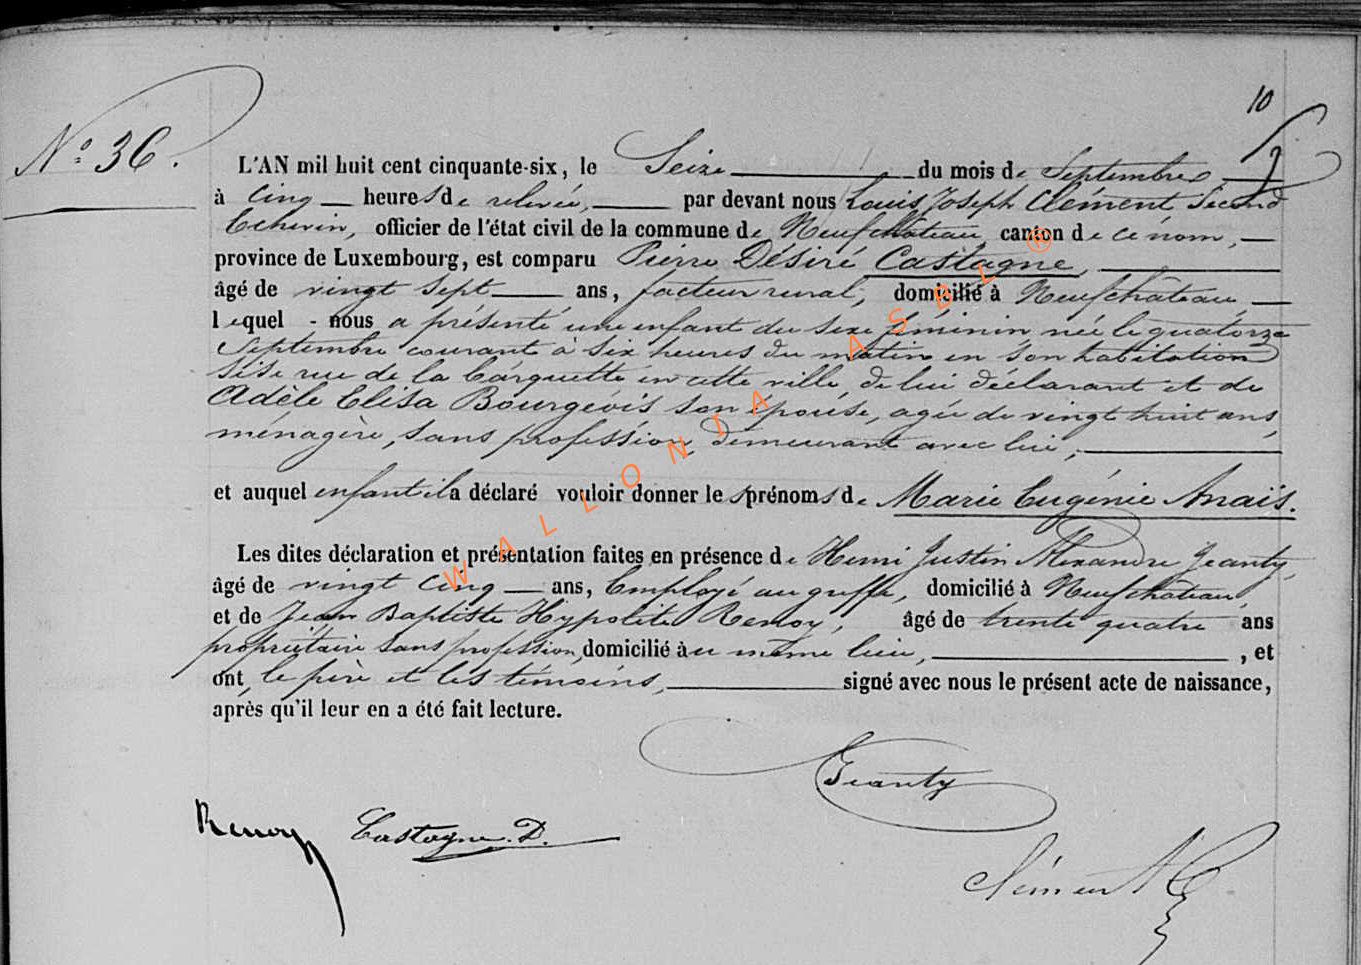 10
N° 36.
L'AN mil huit cent cinquante-six, le Seize du mois de Septembre
à cinq heures de relevée, par devant nous Louis Joseph Clément, Second
Echevin, officier de l'état civil de la commune de Neufchâteau canton de ce nom,
province de Luxembourg, est comparu Pierre Désiré Castagne,
âgé de vingt sept ans, facteur rural, domicilié à Neufchâteau,
lequel nous a présenté une enfant du sexe féminin née le quatorze
Septembre courant à six heures du matin en son habitation
sise rue de la en cette ville, de lui déclarant et de
Adèle Elisa Bourgeois son épouse, agée de vingt huit ans,
ménagère, sans profession, demeurant avec lui,
et auquel enfant il a déclaré vouloir donner les prénoms de Marie Eugénie Anaïs.
Les dites déclaration et présentation faites en présence de Henri Justin Alexandre Jeanty,
âgé de vingt cinq ans, Employé au greffe, domicilié à Neufchâteau,
et de Jean Baptiste Hypolite Renoy, âgé de trente quatre ans
propriétaire sans profession, domicilié au même lieu, , et
ont, le père et les témoins, signé avec nous le présent acte de naissance,
après qu'il leur en a été fait lecture.
Jeanty
Renoy Castagne. D.
Clément
WALLONIA ASBL ®